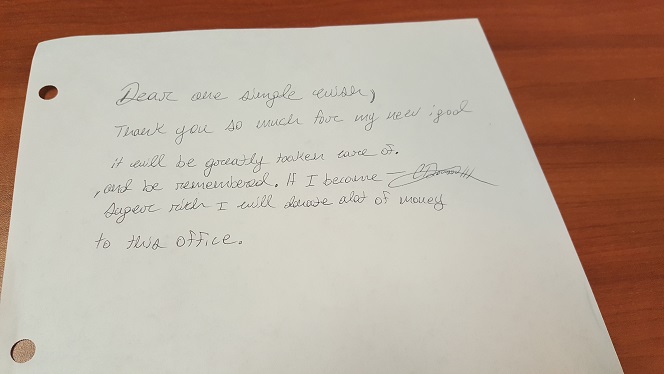 Dear one simple wish,
Thank you so much for my new ipad
it will be greatly taken care of.
, and be remembered. If I become
super rich I will donate alot of money
to this office.